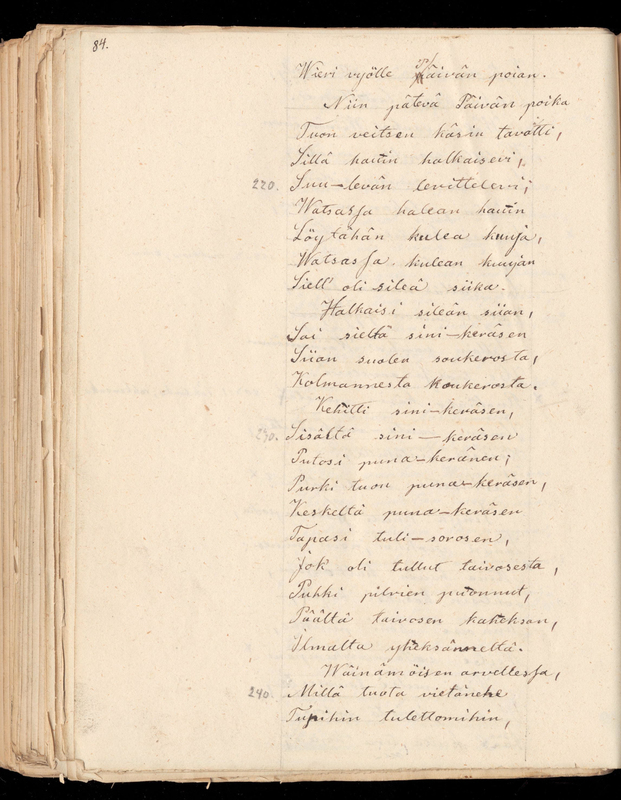 84.
Wieri vyölle Päivän poian.
Niin pätevä Päivän poika
Tuon veitsen käsin tavotti,
Sillä hauin halkaisevi,
220. Suu-levän levittelevi;
Watsassa halean hauin
Löytähän kulea kuuja,
Watsassa kulean kuujan
Siell' oli sileä siika.
Halkaisi sileän siian,
Sai sieltä sini-keräsen
Siian suolen soukerosta,
Kolmannesta koukerosta.
Kehitti sini-keräsen,
230. Sisältä sini-keräsen
Putosi puna-keränen;
Purki tuon puna-keräsen,
Keskeltä puna-keräsen
Tapasi tuli-sorosen,
Jok' oli tullut taivosesta,
Puhki pilvien pudonnut,
Päältä taivosen kaheksan,
Ilmalta yheksänneltä.
Wäinämöisen arvellessa,
240. Millä tuota vietänehe
Tupihin tulettomihin,